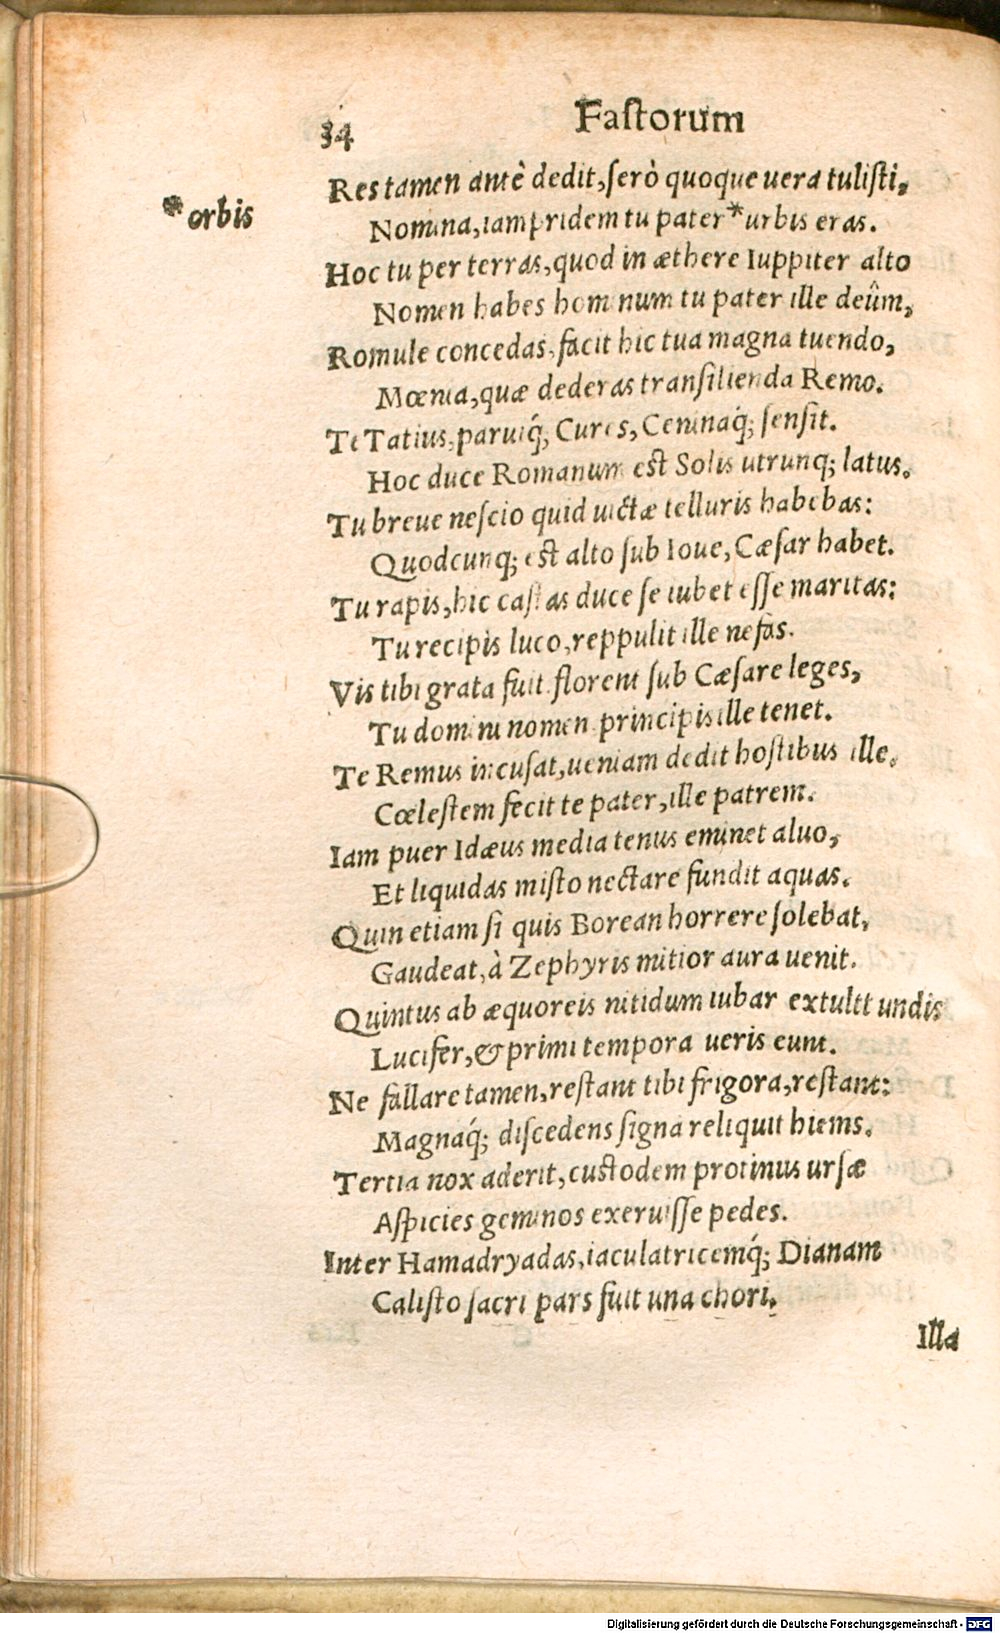 34 Fastorum
Res tamen antè dedit, serò quoque uera tulisti,
*orbis
Nomina, iampridem tu pater *urbis eras.
Hoc tu per terras, quod in æthere Iuppiter alto
Nomen habes hominum tu pater ille deûm,
Romule concedas, facit hic tua magna tuendo,
Mœnia, quæ dederas transilienda Remo.
Te Tatius, paruiq́;, Cures, Ceninaq́; sensit.
Hoc duce Romanum est Solis utrunq; latus.
Tu breue nescio quid uictæ telluris habebas:
Quodcunq; est alto sub Ioue, Cæsar habet.
Tu rapis, hic castas duce se iubet esse maritas:
Tu recipis luco, reppulit ille nefas.
Vis tibi grata fuit florent sub Cæsare leges,
Tu domini nomen principis ille tenet.
Te Remus incusat, ueniam dedit hostibus ille,
Cœlestem fecit te pater, ille patrem.
Iam puer Idæus media tenus eminet aluo,
Et liquidas misto nectare fundit aquas.
Quin etiam si quis Borean horrere solebat,
Gaudeat, à Zephyris mitior aura uenit.
Quintus ab æquoreis nitidum iubar extultt undis
Lucifer, & primi tempora ueris eunt.
Ne fallare tamen, restant tibi frigora, restant:
Magnaq́; discedens signa reliquit hiems.
Tertia nox aderit, custodem protinus ursæ
Aspicies geminos exeruisse pedes.
Inter Hamadryadas, iaculatricemq́; Dianam
Calisto sacri pars fuit una chori.
Illa
Digitalisierung gefördert durch die Deutsche Forschungsgemeinschaft - DFG